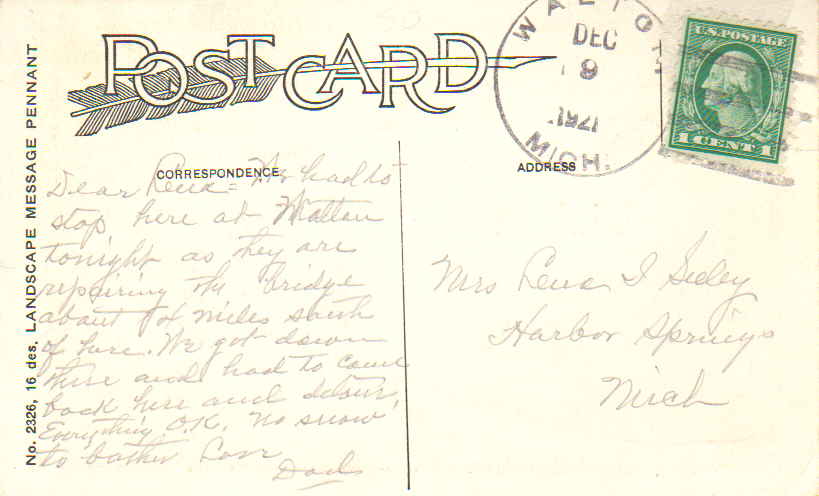 POST CARD
WALTON
DEC
9
MICH.
U.S. POSTAGE
1 CENT 1
CORRESPONDENCE
ADDRESS
No. 2326, 16 des. LANDSCAPE MESSAGE PENNANT
Dear Lena = We had to
stop here at Walton
tonight as they are
repairing the bridge
about 4 miles south
of here. We got down
there and had to come
back here and detour.
Everything O.K. No snow
to bother Love
Dad
Mrs Lena I Seeley
Harbor Springs
Mich